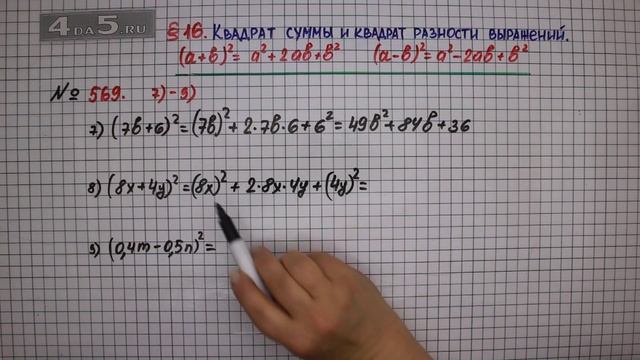 4DA5.RU
§16. Квадрат суммы и квадрат разности выражений.
(a+b)² = a²+2ab+b² (a-b)² = a²-2ab+b²
№ 569. 7)-9)
7) (7b+6)² = (7b)² + 2·7b·6 + 6² = 49b² + 84b + 36
8) (8x+4y)² = (8x)² + 2·8x·4y + (4y)² =
9) (0,4m-0,5n)² =